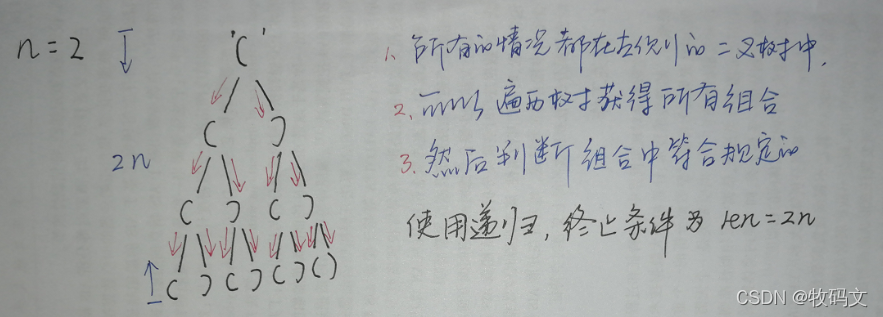 n=2
'('
( )
2n
( ) ( )
( ) ( ) ( ) ( )
1. 所有的情况都在左侧的二叉树中.
2. 所以遍历树获得所有组合
3. 然后判断组合中符合规定的
使用递归,终止条件为 len=2n
CSDN @牧码文